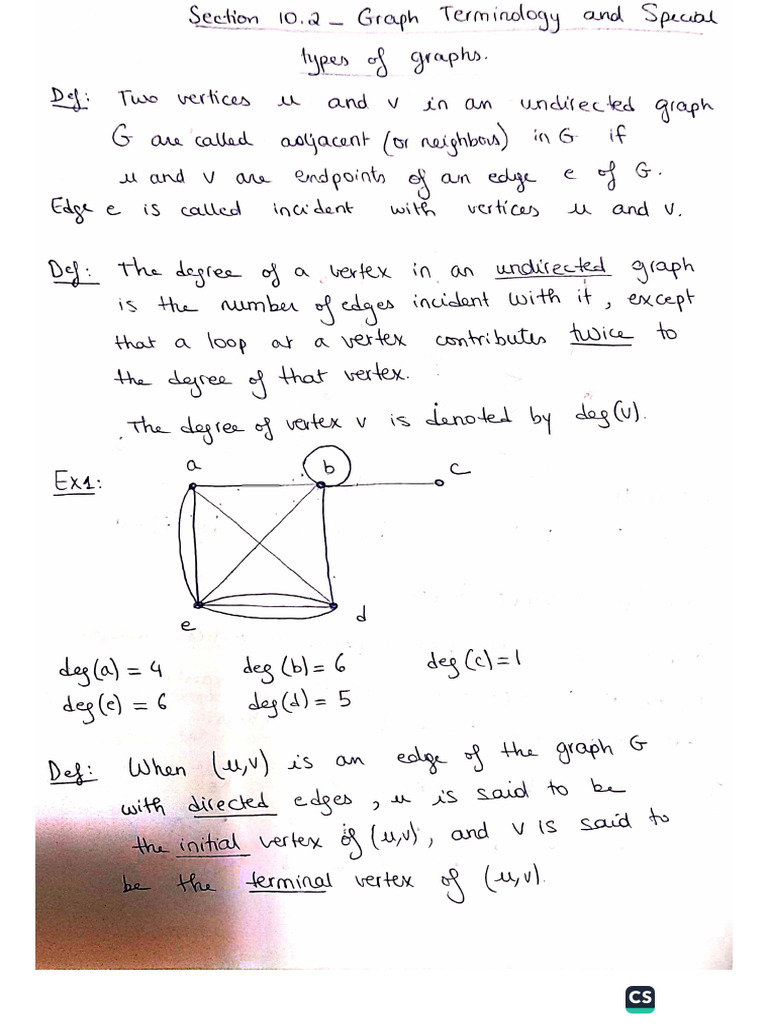 Section 10.2 - Graph Terminology and Special
types of graphs.
Def: Two vertices u and v in an undirected graph
G are called adjacent (or neighbors) in G if
u and v are endpoints of an edge e of G.
Edge e is called incident with vertices u and v.
Def: The degree of a vertex in an undirected graph
is the number of edges incident with it, except
that a loop at a vertex contributes twice to
the degree of that vertex.
The degree of vertex v is denoted by deg(v).
Ex1:
a b c
e d
deg(a) = 4 deg(b) = 6 deg(c) = 1
deg(e) = 6 deg(d) = 5
Def: When (u,v) is an edge of the graph G
with directed edges, u is said to be
the initial vertex of (u,v), and v is said to
be the terminal vertex of (u,v).
CS